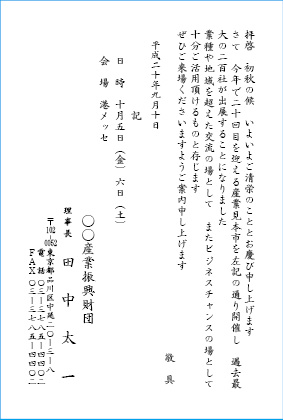 拝啓　初秋の候　いよいよご清栄のこととお慶び申し上げます
さて　今年で二十回目を迎える産業見本市を左記の通り開催し　過去最
大の二百社が出展することになりました
業種や地域を超えた交流の場として　またビジネスチャンスの場として
十分ご活用頂けるものと存じます
ぜひご来場くださいますようご案内申し上げます
敬具
平成二十年九月十日
記
日　時　十月五日（金）六日（土）
会　場　港メッセ
〇〇産業振興財団
理事長　田中太一
〒102-0062　東京都品川区中延二〇-三-八
電話〇三-三七八五-四四〇二
ＦＡＸ〇三-三七八五-四四〇二